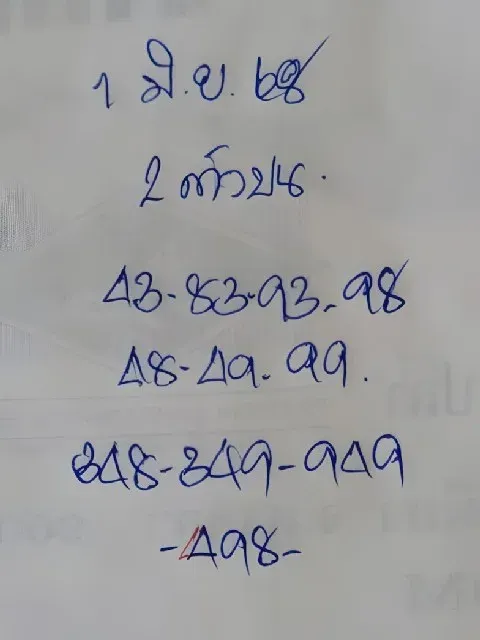 1 มิ.ย. 68
2 ตัวบน.
43-83-93-98
48-49-99.
348-349-949
-498-